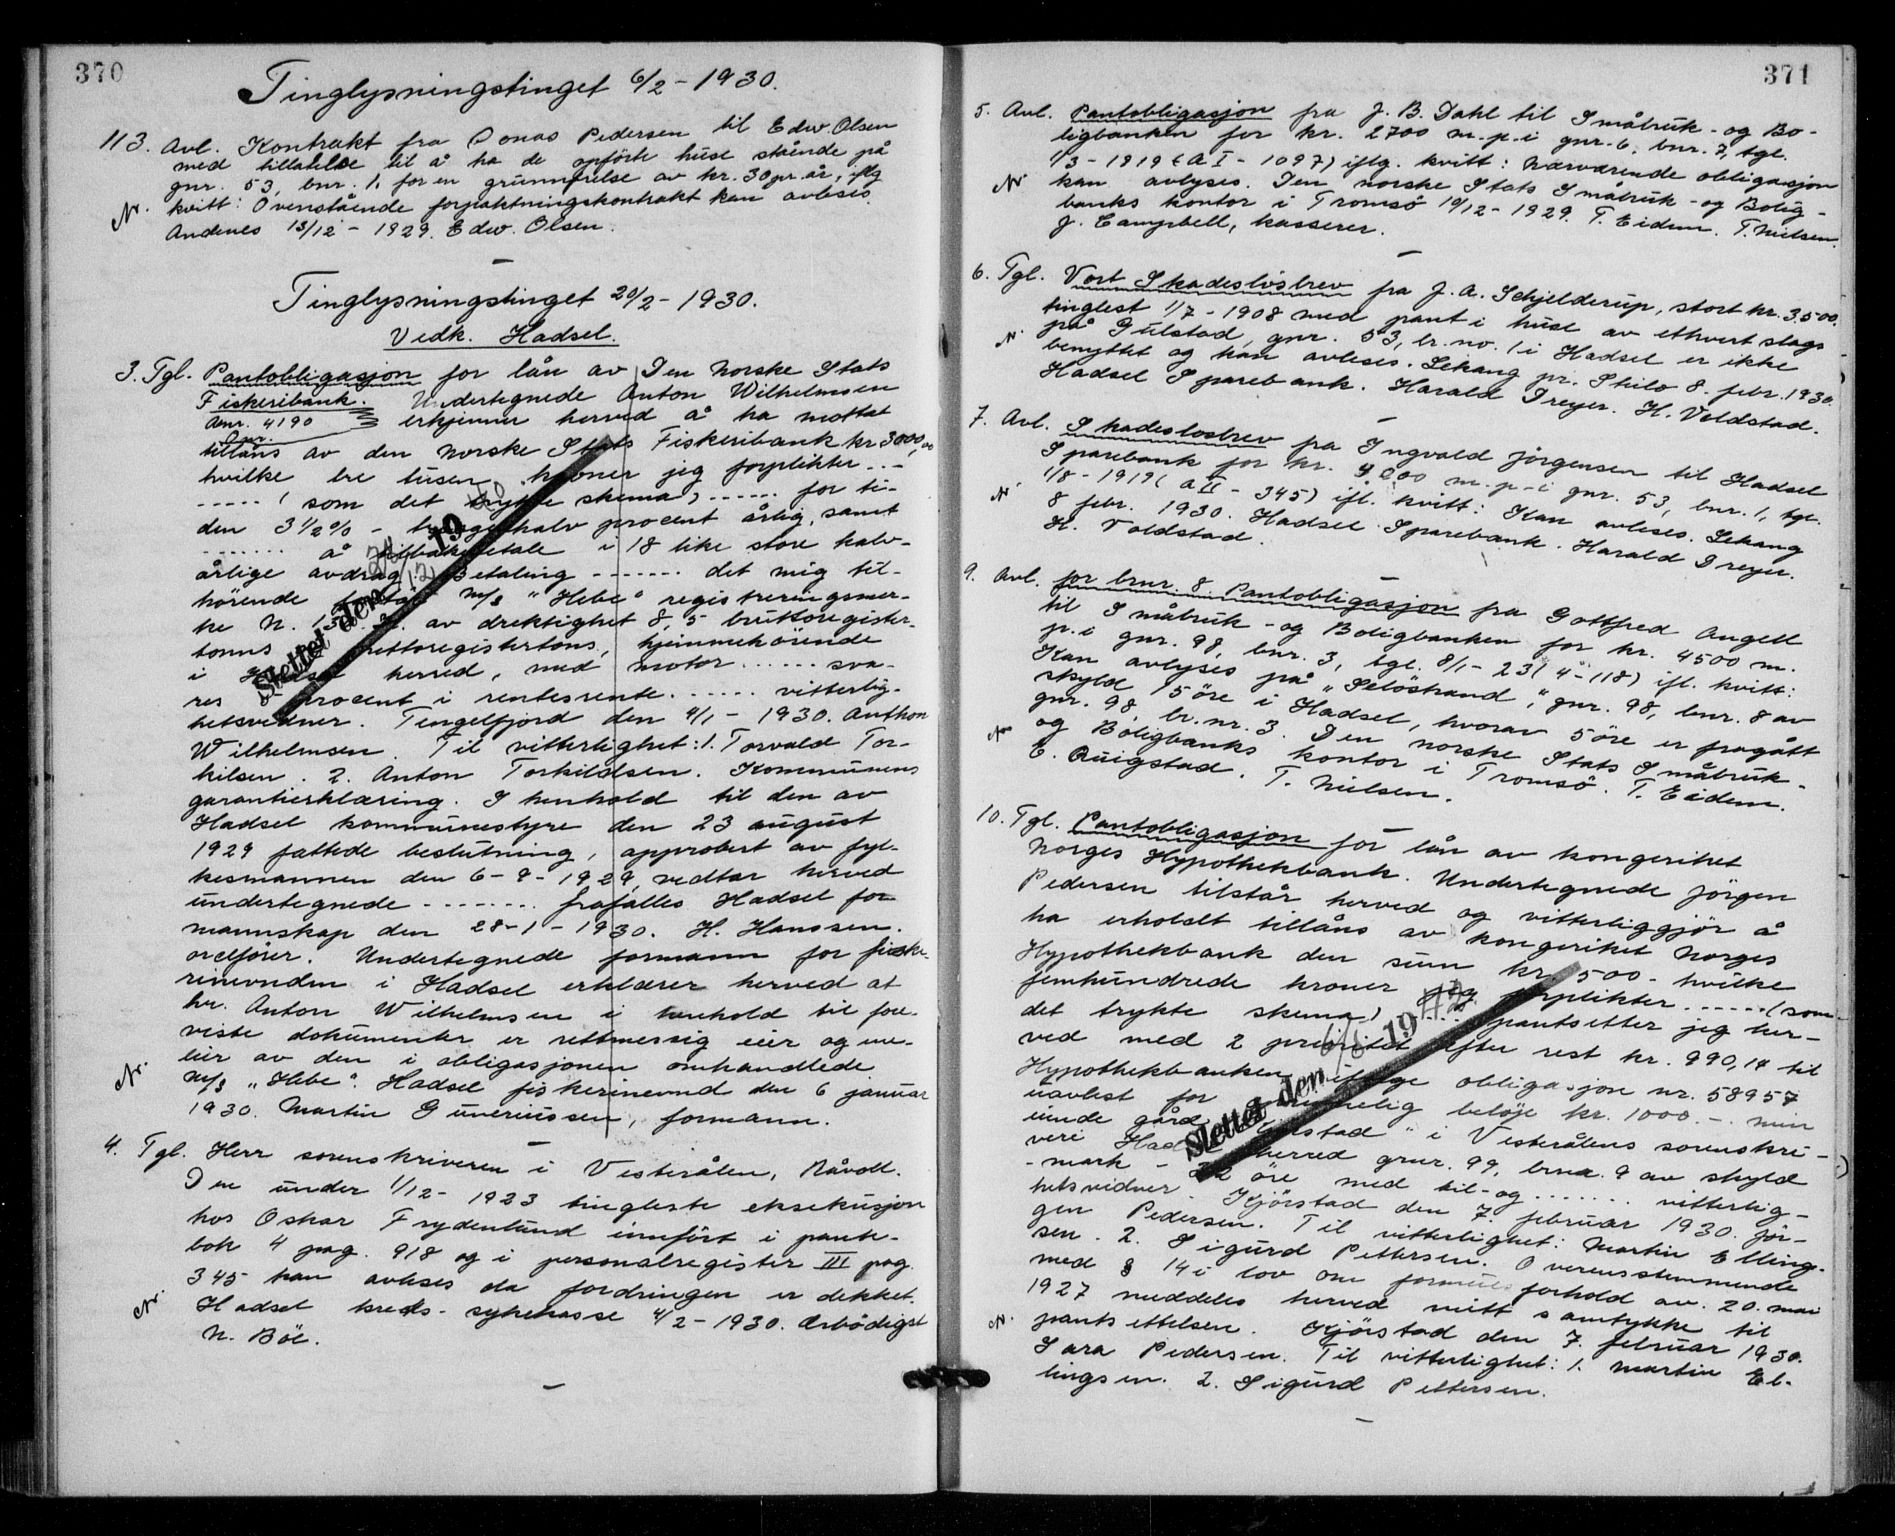 370
Tinglysningstinget 6/2 - 1930.
113. Avl. Kontrakt fra Jonas Pedersen til Edw. Olsen
med tillatelse til å ha de opförte huse stående på
gnr. 53, bnr. 1, for en grunnfrelse av kr. 30 pr. år, iflg
kvitt: Ovenstående forpaktningskontrakt kan avleses.
Andenes 13/12 - 1929. Edw. Olsen.
Tinglysningstinget 20/2 - 1930.
Vedk. Hadsel.
3. Tgl. Pantobligasjon for lån av Den Norske Stats
Fiskeribank. Undertegnede Anton Wilhelmsen
4190 erkjenner herved å ha mottat
tillåns av den Norske Stats Fiskeribank kr 3000,00
hvilke tre tusen kroner jeg forplikter ...
..... (som det trykte skema) ...... for ti-
den 3 1/2 % - halv procent årlig, samt
....... å tilbakebetale i 18 like store halv-
årlige avdrag. Betaling ....... det mig til-
hörende m/s "Hebe" registreringsmer-
ke N. av drektighet 8,5 bruttoregister-
tonns nettoregistertons, hjemmehörende
i Hadsel herred, med motor ...... sva-
res procent i rentesrente ...... vitterlig-
hetsvidner. Tengelfjord den 4/1 - 1930. Anthon
Wilhelmsen. Til vitterlighet: 1. Torvald Tor-
kilsen. 2. Anton Torkildsen. Kommunens
garantierklæring. I henhold til den av
Hadsel kommunestyre den 23 august
1929 fattede beslutning, approbert av fyl-
kesmannen den 6-9-1929 vedtar herved
undertegnede ........ frafalles Hadsel for
mannskap den 28-1-1930. H. Hanssen.
ordförer. Undertegnede formann for fiske-
rinevnden i Hadsel erklærer herved at
hr. Anton Wilhelmsen i henhold til fore-
viste dokumenter er rettmessig eier og ene-
eier av den i obligasjonen omhandlede
m/s "Hebe". Hadsel fiskerinevnd den 6 januar
1930. Martin Guneriussen, formann.
Slettet den 19
4. Tgl. Herr sorenskriveren i Vesterålen, Råvoll.
Den under 1/12 - 1923 tingleste eksekusjon
hos Oskar Frydenlund innfört i pante-
bok 4 pag. 918 og i personalregister III pag.
345 kan avleses da fordringen er dekket.
Hadsel kreds-sykekasse 4/2 - 1930. Ærbödigst
N. Böe.
371
5. Avl. Pantobligasjon fra J. B. Dahl til Småbruk- og Bo-
ligbanken for kr. 2700 m. p. i gnr. 6, bnr. 7, tgl.
1/3 - 1919 (A I - 1097) iflg. kvitt: Nærværende obligasjon
kan avlyses. Den norske Stats Småbruk- og Bolig-
banks kontor i Tromsö 10/12 - 1929. T. Eidem. T. Nielsen.
J. Campbell, kasserer.
6. Tgl. Vort Skadeslösbrev fra J. A. Schjelderup, stort kr. 3.500.
tinglest 1/7 - 1908 med pant i huse av ethvert slags
på Gulstad, gnr. 53, br.no. 1 i Hadsel er ikke
benyttet og kan avleses. Lekang pr. Skilo 8. febr. 1930.
Hadsel Sparebank. Harald Dreyer. H. Voldstad.
7. Avl. Skadeslosbrev fra Ingvald Jörgensen til Hadsel
Sparebank for kr. 4000 m. p. i gnr. 53, bnr. 1, tgl.
1/8 - 1919 (A II - 345) ifl. kvitt: Kan avleses. Lekang
8 febr. 1930. Hadsel Sparebank. Harald Dreyer.
H. Voldstad.
9. Avl. for bnr. 8 Pantobligasjon fra Gottfred Angell
til Småbruk- og Boligbanken for kr. 4500 m.
p. i gnr. 98, bnr. 3, tgl. 8/1 - 23 (4 - 118) ifl. kvitt:
Kan avlyses på "Selöstrand", gnr. 98, bnr. 8 av
skyld 5 öre i Hadsel, hvorav 5 öre er fragått
gnr. 98 br.nr. 3. Den norske Stats Småbruk-
og Boligbanks kontor i Tromsö. T. Eidem.
E. Quigstad. T. Nielsen.
10. Tgl. Pantobligasjon for lån av kongeriket
Norges Hypothekbank. Undertegnede Jörgen
Pedersen tilstår herved og vitterliggjör å
ha erholdt tillåns av kongeriket Norges
Hypothekbank den sum kr. 500 - hvilke
femhundrede kroner jeg forplikter ..... (som
det trykte skema) pantsetter jeg her-
ved med 2 prioritet efter rest kr. 990,14 til
Hypothekbanken ifölge obligasjon nr. 58957
uavlest for oprinnelig belöp kr. 1000.- min
eiende gård i Vesterålens sorenskri-
veri Hadsel herred gnr. 99, bnr. 9 av skyld
- mark - 22 öre med til- og ....... vitterlig-
hetsvidner. Kjörstad den 7. februar 1930. Jör-
gen Pedersen. Til vitterlighet: Martin Elling-
sen. 2. Sigurd Pettersen. Overensstemmende
med § 14 i lov om formues forhold av. 20. mai
1927 meddeles herved mitt samtykke til
pantsettelsen. Kjörstad den 7. februar 1930.
Sara Pedersen. Til vitterlighet: 1. Martin El-
lingsen. 2. Sigurd Pettersen.
Slettet den 6/8 1942